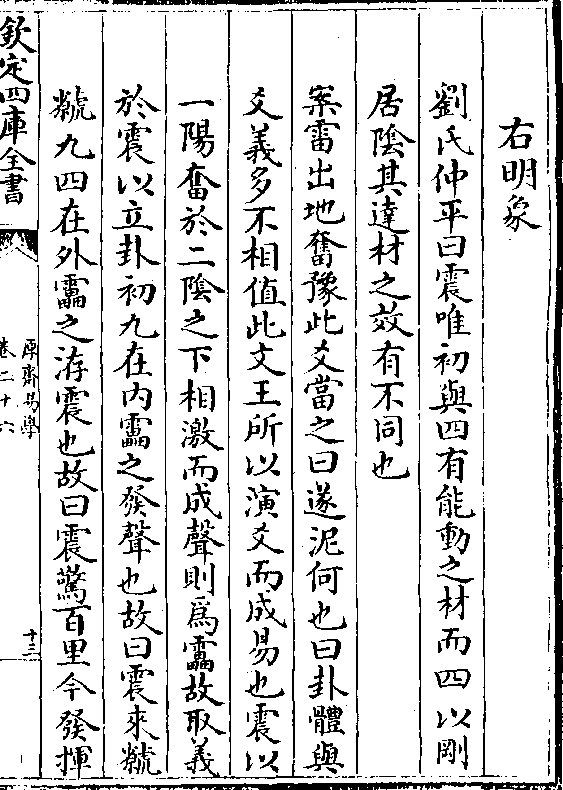 右明象
劉氏仲平曰震唯初與四有能動之材而四以剛
居陰其達材之效有不同也
案雷出地奮豫此爻當之曰遂泥何也曰卦體與
爻義多不相值此文王所以演爻而成易也震以
一陽奮於二陰之下相激而成聲則爲靁故取義
於震以立卦初九在內靁之發聲也故曰震來虩
虩九四在外靁之洊震也故曰震驚百里今發揮
欽定四庫全書
厚齋易學
卷二十六
十三